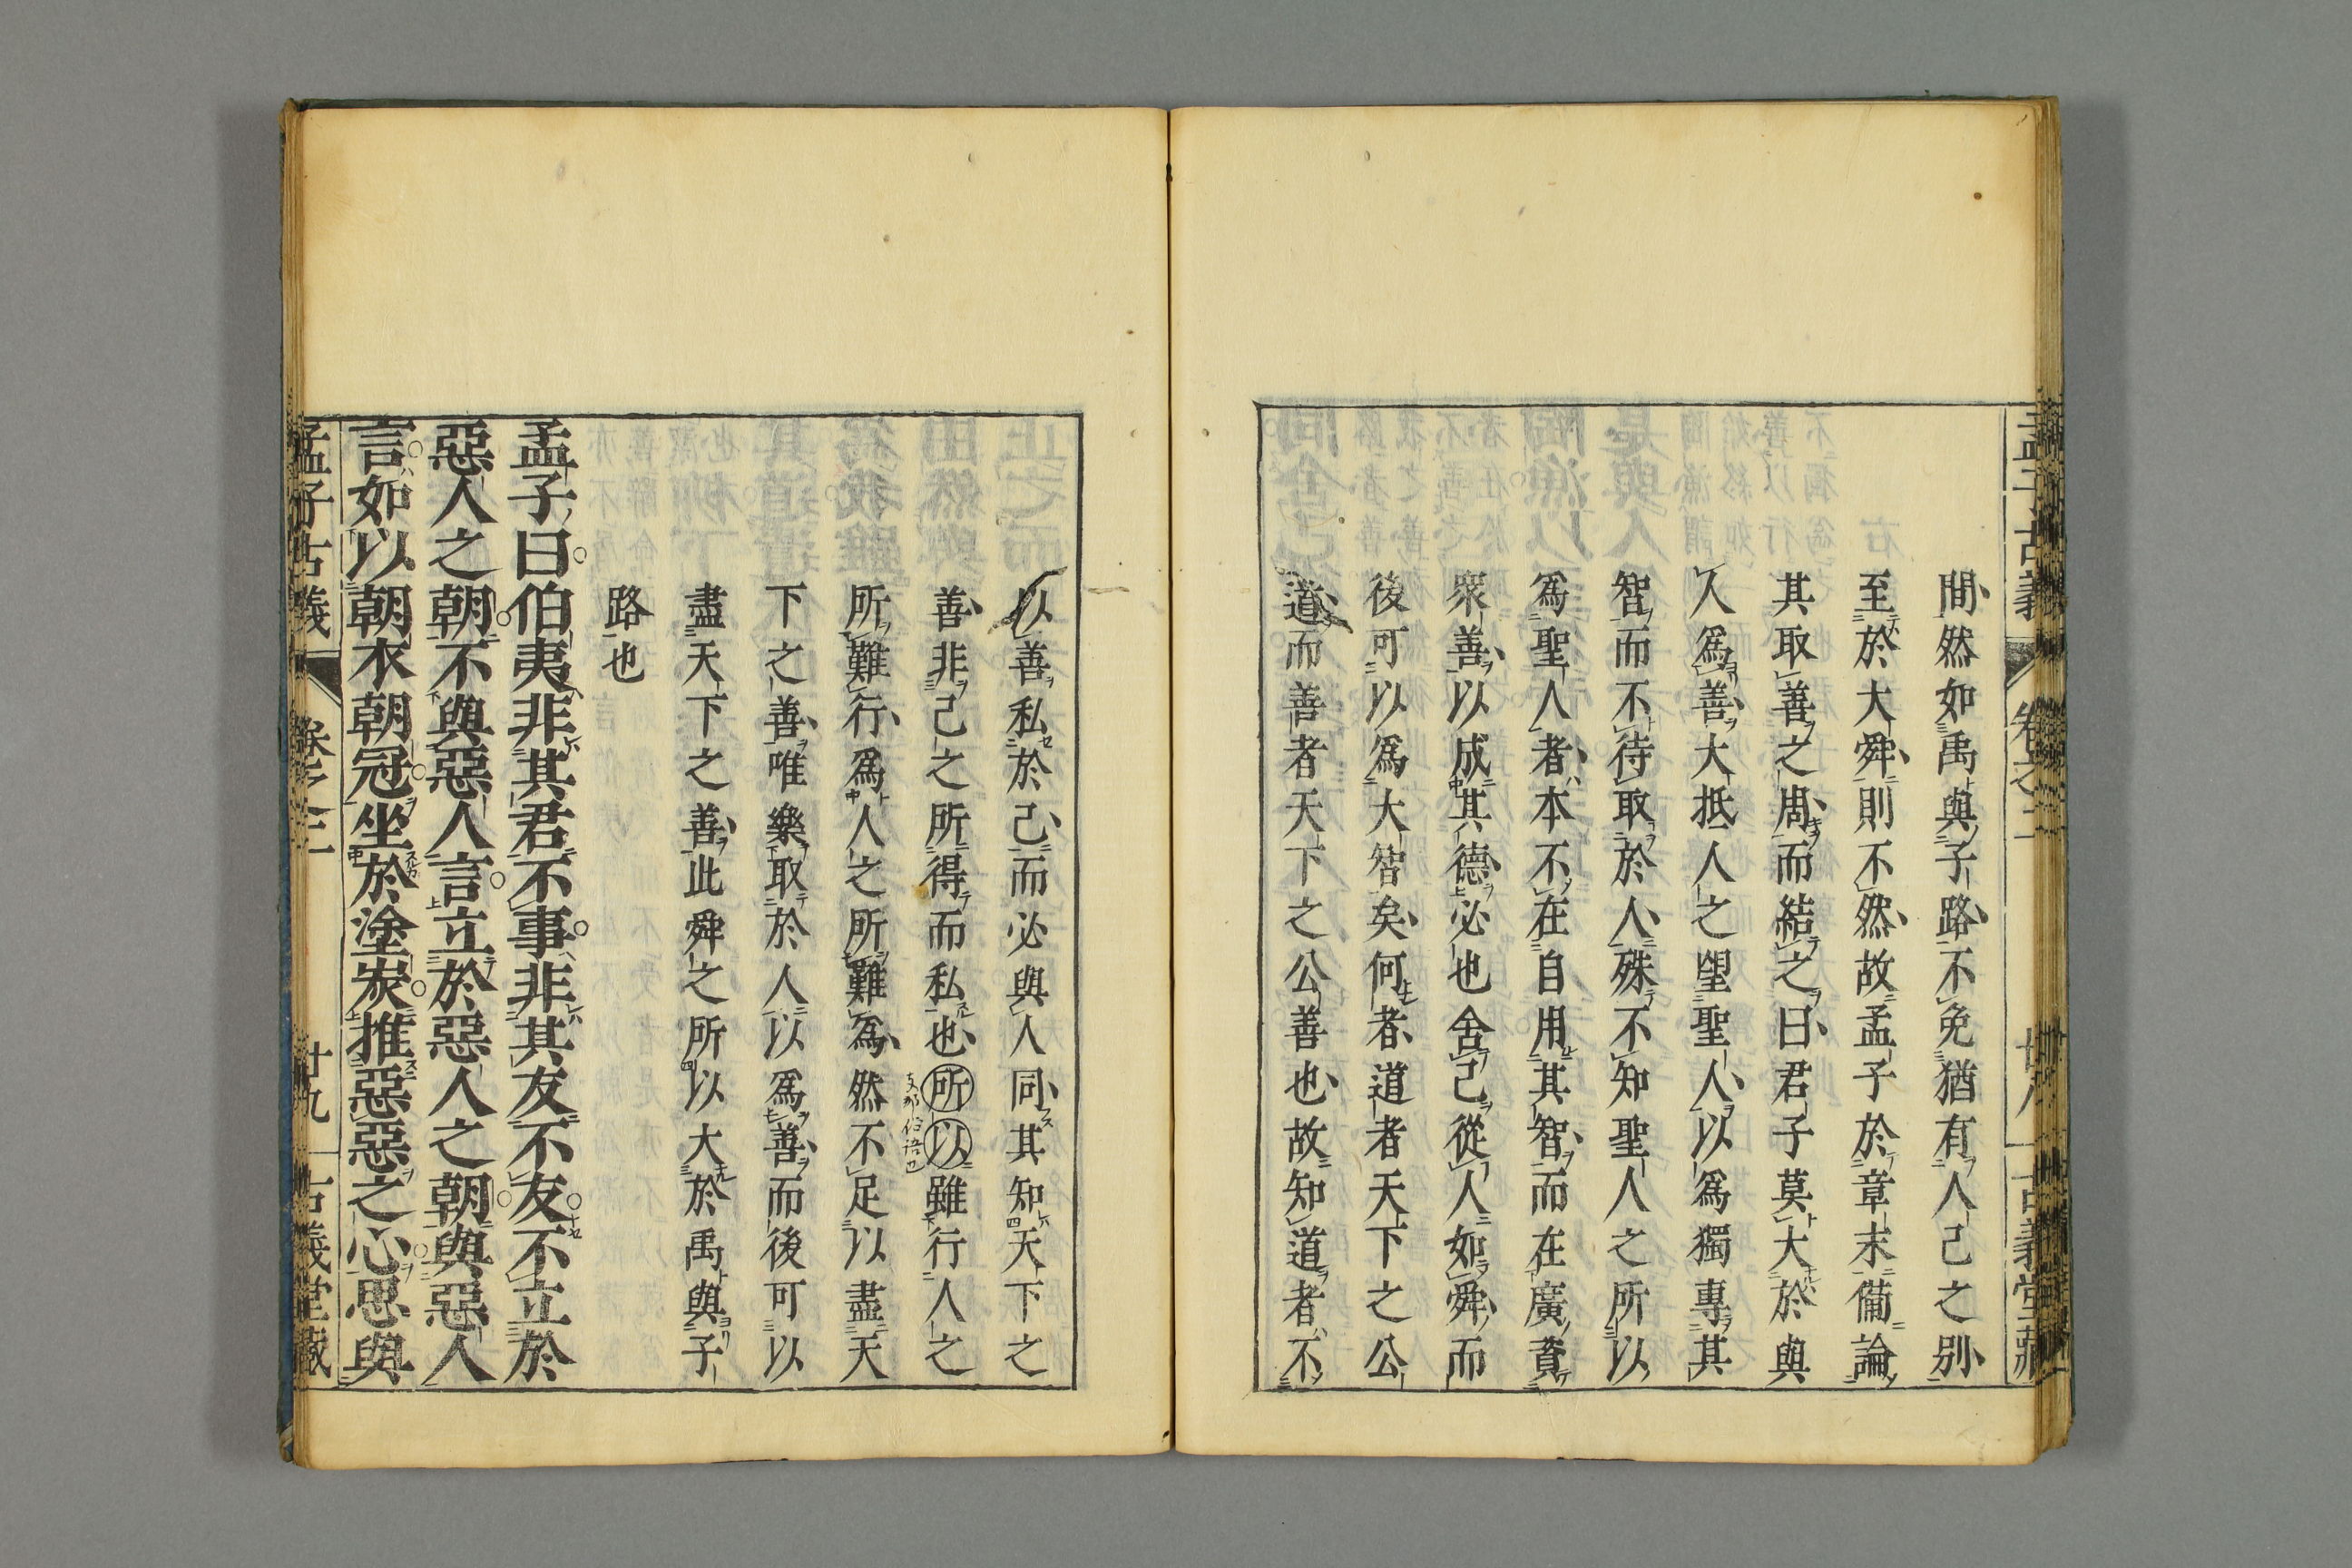 孟子古義 卷之二 廿八 古義堂藏
間然如禹與子路不免猶有人己之別
至於大舜則不然故孟子於章末備論
其取善之周而結之曰君子莫大於與
人爲善大抵人之望聖人以爲獨專其
智而不待取於人殊不知聖人之所以
爲聖人者本不在自用其智而在廣資
衆善以成其德必也舍己從人如舜而
後可以爲大智矣何者道者天下之公
道而善者天下之公善也故知道者不
以善私於己而必與人同其知天下之
善非己之所得而私也所以雖行人之
所難行爲人之所難爲然不足以盡天
下之善唯樂取於人以爲善而後可以
盡天下之善此舜之所以大於禹與子
路也
孟子曰伯夷非其君不事非其友不友不立於
惡人之朝不與惡人言立於惡人之朝與惡人
言如以朝衣朝冠坐於塗炭推惡惡之心思與
孟子古義 卷之二 廿九 古義堂藏